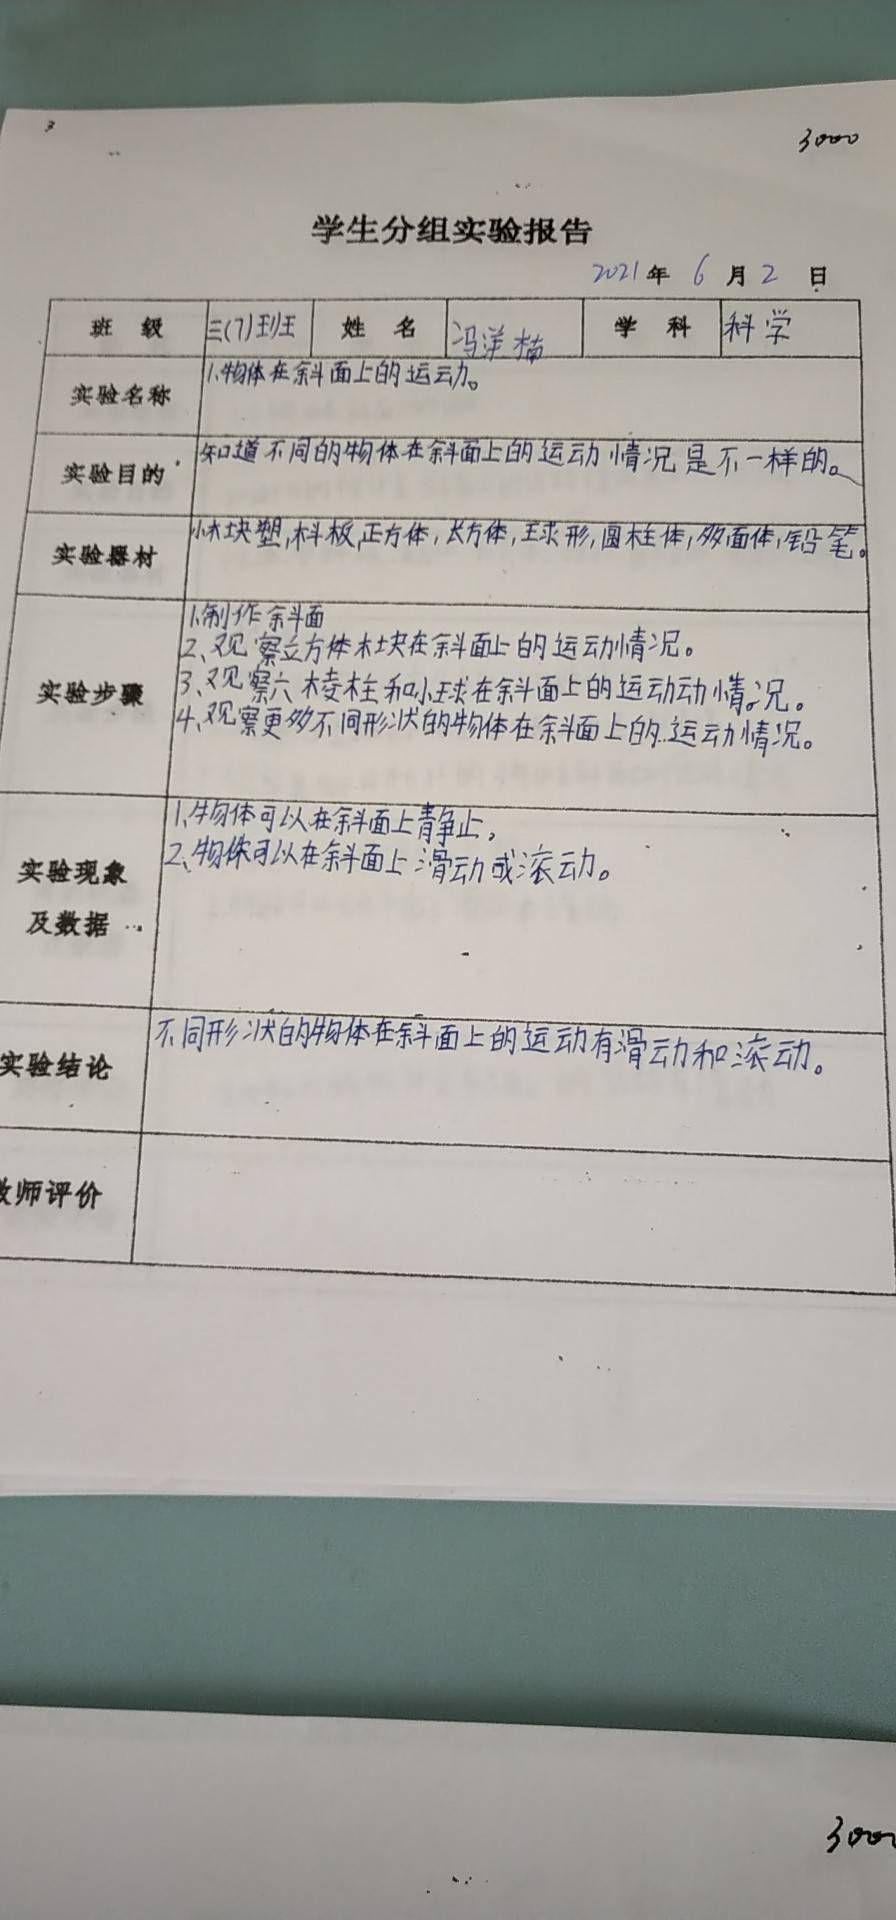 3000
学生分组实验报告
2021年 6月2日
班 级 三(7)班 姓 名 冯洋楠 学 科 科学
实验名称 1.物体在斜面上的运动。
实验目的 知道不同的物体在斜面上的运动情况是不一样的。
实验器材 小木块,塑料板,正方体,长方体,球形,圆柱体,多面体,铅笔。
实验步骤
1.制作斜面
2、观察立方体木块在斜面上的运动情况。
3、观察六棱柱和小球在斜面上的运动动情况。
4、观察更多不同形状的物体在斜面上的运动情况。
实验现象
及数据
1、物体可以在斜面上静止。
2、物体可以在斜面上滑动或滚动。
实验结论 不同形状的物体在斜面上的运动有滑动和滚动。
教师评价
3000